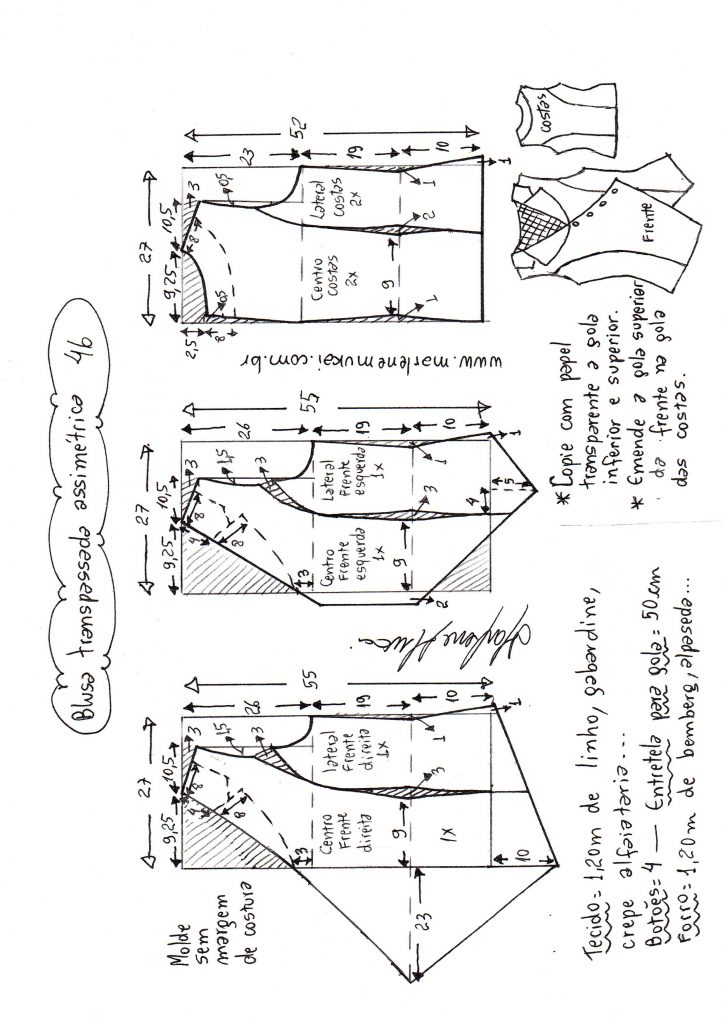 Blusa transpassada assimétrica 46
Molde
sem
margem
de costura
27
9,25
10,5
3
4
8
8
1,5
3
3
26
55
19
10
lateral
Frente
direita
1x
Centro
Frente
direita
1X
9
3
1
1
23
10
27
9,25
10,5
3
4
8
8
1,5
3
3
26
55
19
10
Lateral
Frente
esquerda
1x
Centro
Frente
esquerda
1x
9
3
1
1
2
4
15
www.marlenemukai.com.br
27
9,25
10,5
3
2,5
8
8
0,5
0,5
23
52
19
10
Lateral
costas
2x
Centro
costas
2x
9
2
1
1
1
Tecido= 1,20m de linho, gabardine,
crepe alfaiataria...
Botões= 4 — Entretela para gola= 50cm
Forro= 1,20m de bemberg, alpaseda...
* Copie com papel
transparente a gola
inferior e superior.
* Emende a gola superior
da frente na gola
das costas.
Frente
costas